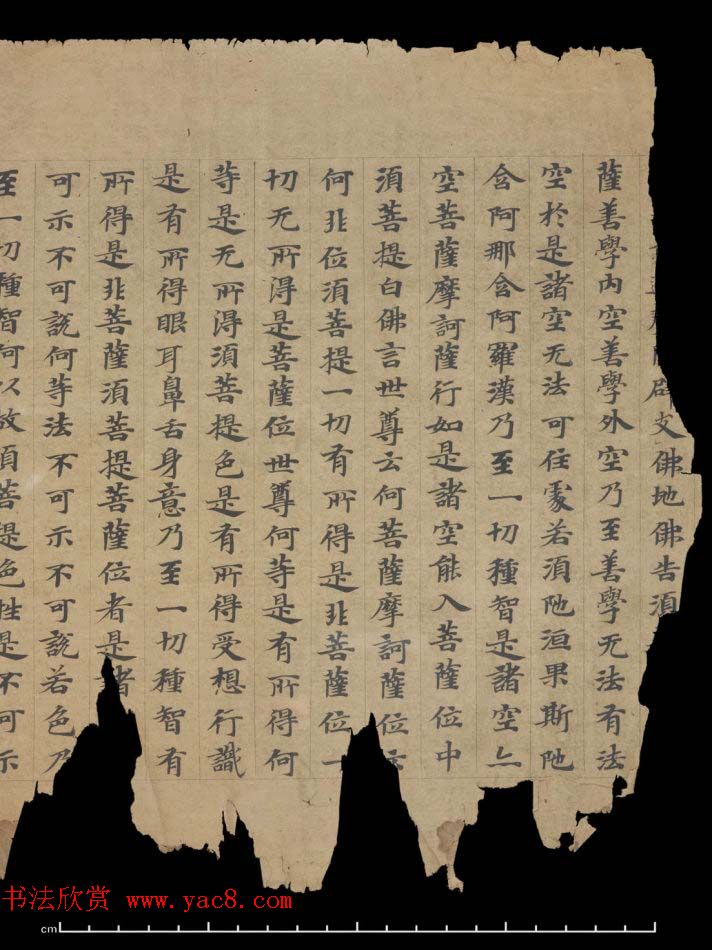 辟支佛地佛告須
薩善學内空善學外空乃至善學无法有法
空於是諸空无法可住處若須陁洹果斯陁
含阿那含阿羅漢乃至一切種智是諸空亦
空菩薩摩訶薩行如是諸空能入菩薩位中
須菩提白佛言世尊云何菩薩摩訶薩位云
何非位須菩提一切有所得是非菩薩位一
切无所得是菩薩位世尊何等是有所得何
等是无所得須菩提色是有所得受想行識
是有所得眼耳鼻舌身意乃至一切種智有
所得是非菩薩須菩提菩薩位者是諸
可示不可說何等法不可示不可說若色乃
至一切種智何以故須菩提色性是不可示
书法欣赏 www.yac8.com
cm